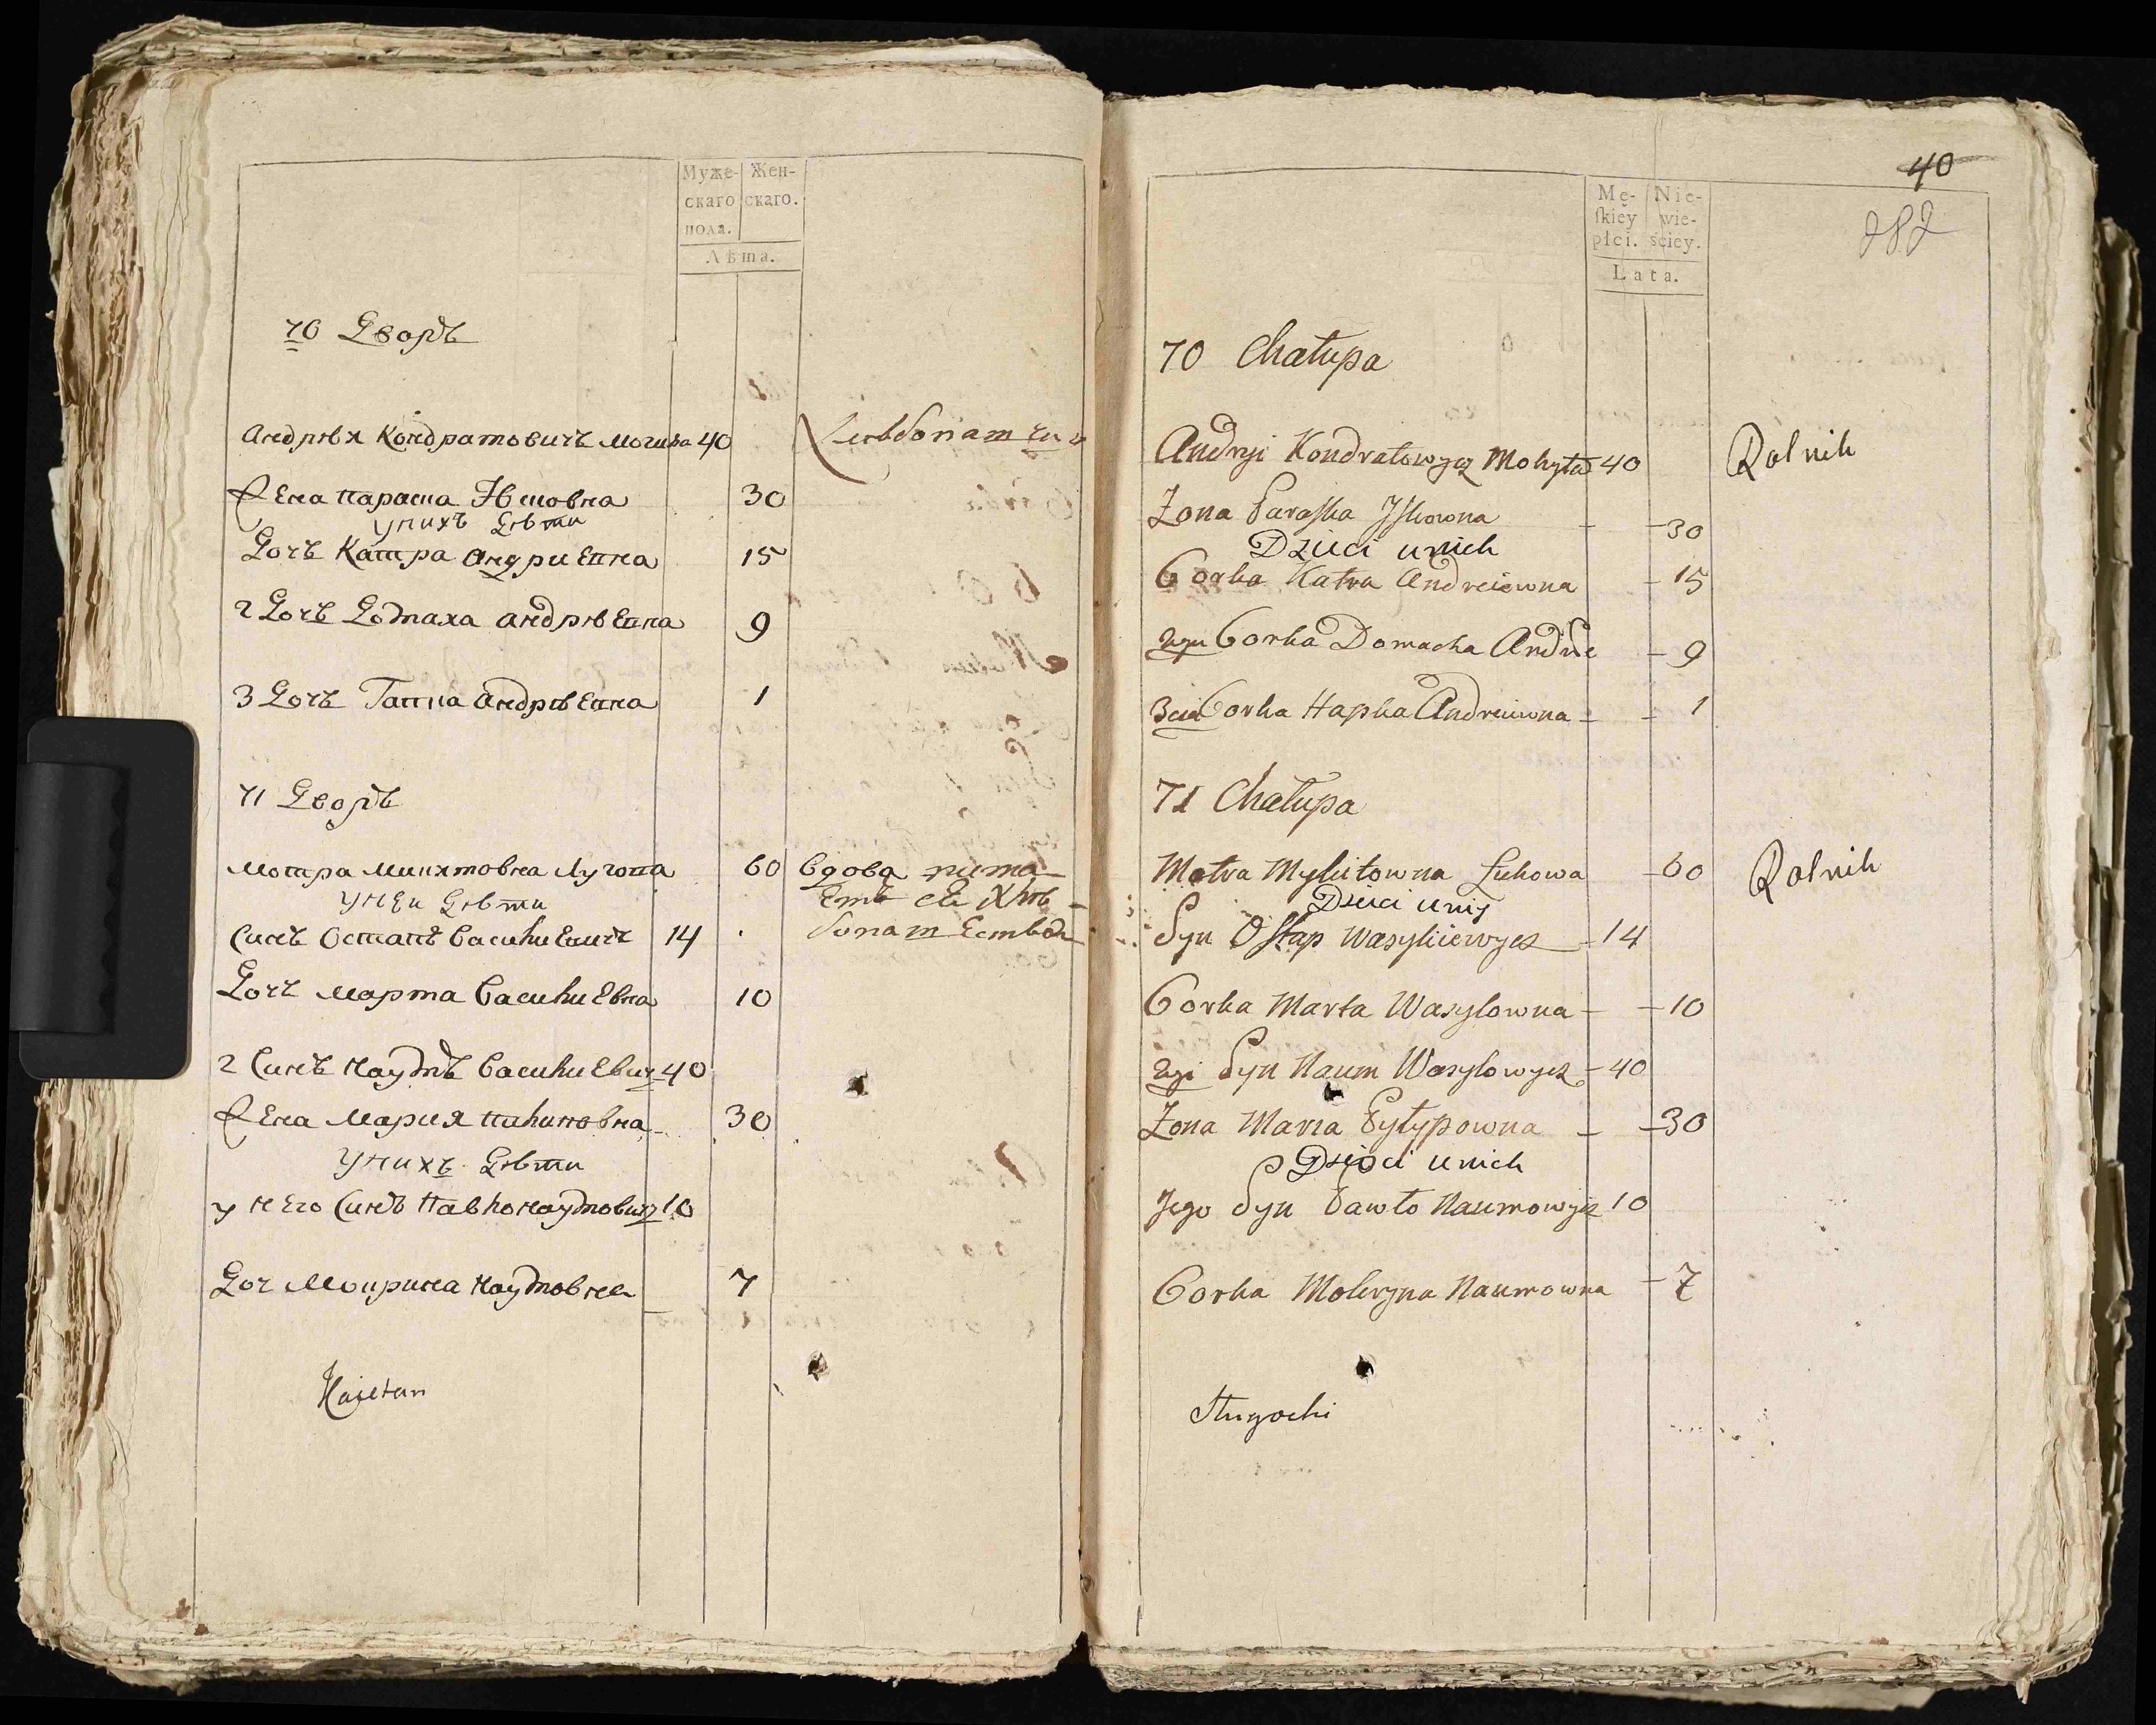 Муже- Жен-
скаго скаго.
пола.
Лѣта.
70 Дворъ
Андрѣя Кондратовичъ Могила 40
Жена Параша 30
Унихъ Дѣти
Дочъ Катра Андриевна 15
2 Дочъ Домаха Андрѣевна 9
3 Дочъ Гапка Андрѣевна 1
71 Дворъ
Мотра Микитовна 60 Вдова
Унеи Дѣти
Синъ Остапъ Василиевичъ 14
Дочъ Марта Василиевна 10
2 Синъ Наумъ Василиевич 40
Жена Мария Пилиповна 30
Унихъ Дѣти
у него Синъ Павло Наумович 10
Доч Мокрина Наумовна 7
Kaietan
40
282
Mę- Nie-
ſkiey wie-
płci. ściey.
Lata.
70 Chałupa
Andryi Kondratowycz Mohyła 40 Rolnik
Zona Paraſka - -30
Dzieci unich
Corka Katra Andreiewna -15
2ga Corka Domacha Andrie -9
3cia Corka Hapka Andreiewna - - 1
71 Chałupa
Motra Mykitowna Luhowa -60 Rolnik
Dzieci uniy
Syn Oſtap Wasyliiewycz -14
Corka Marta Wasylowna - -10
2gi Syn Naum Wasylowycz -40
Zona Maria Pyłypowna - -30
Dzieci unich
Jego Syn Pawło Naumowycz 10
Corka Mokryna Naumowna -7